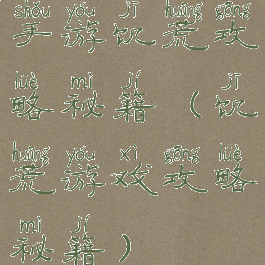 shǒu yóu jī huāng gōng
手游饥荒攻
lüè mì jí jī
略秘籍（饥
huāng yóu xì gōng lüè
荒游戏攻略
mì jí
秘籍）